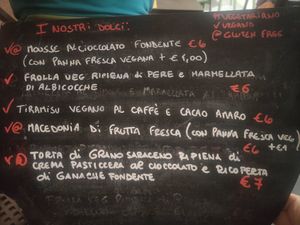 I NOSTRI DOLCI:
# VEGETARIANO
✓ VEGANO
@ GLUTEN FREE
✓@ MOUSSE AL CIOCCOLATO FONDENTE €6
(CON PANNA FRESCA VEGANA + € 1,00)
✓ FROLLA VEG RIPIENA DI PERE E MARMELLATA
DI ALBICOCCHE €6
✓ TIRAMISU VEGANO AL CAFFÈ E CACAO AMARO €6
✓@ MACEDONIA DI FRUTTA FRESCA (CON PANNA FRESCA VEG
€6 +€1
TORTA DI GRANO SARACENO RIPIENA DI
CREMA PASTICCERA AL CIOCCOLATO E RICOPERTA
DI GANACHE FONDENTE €7